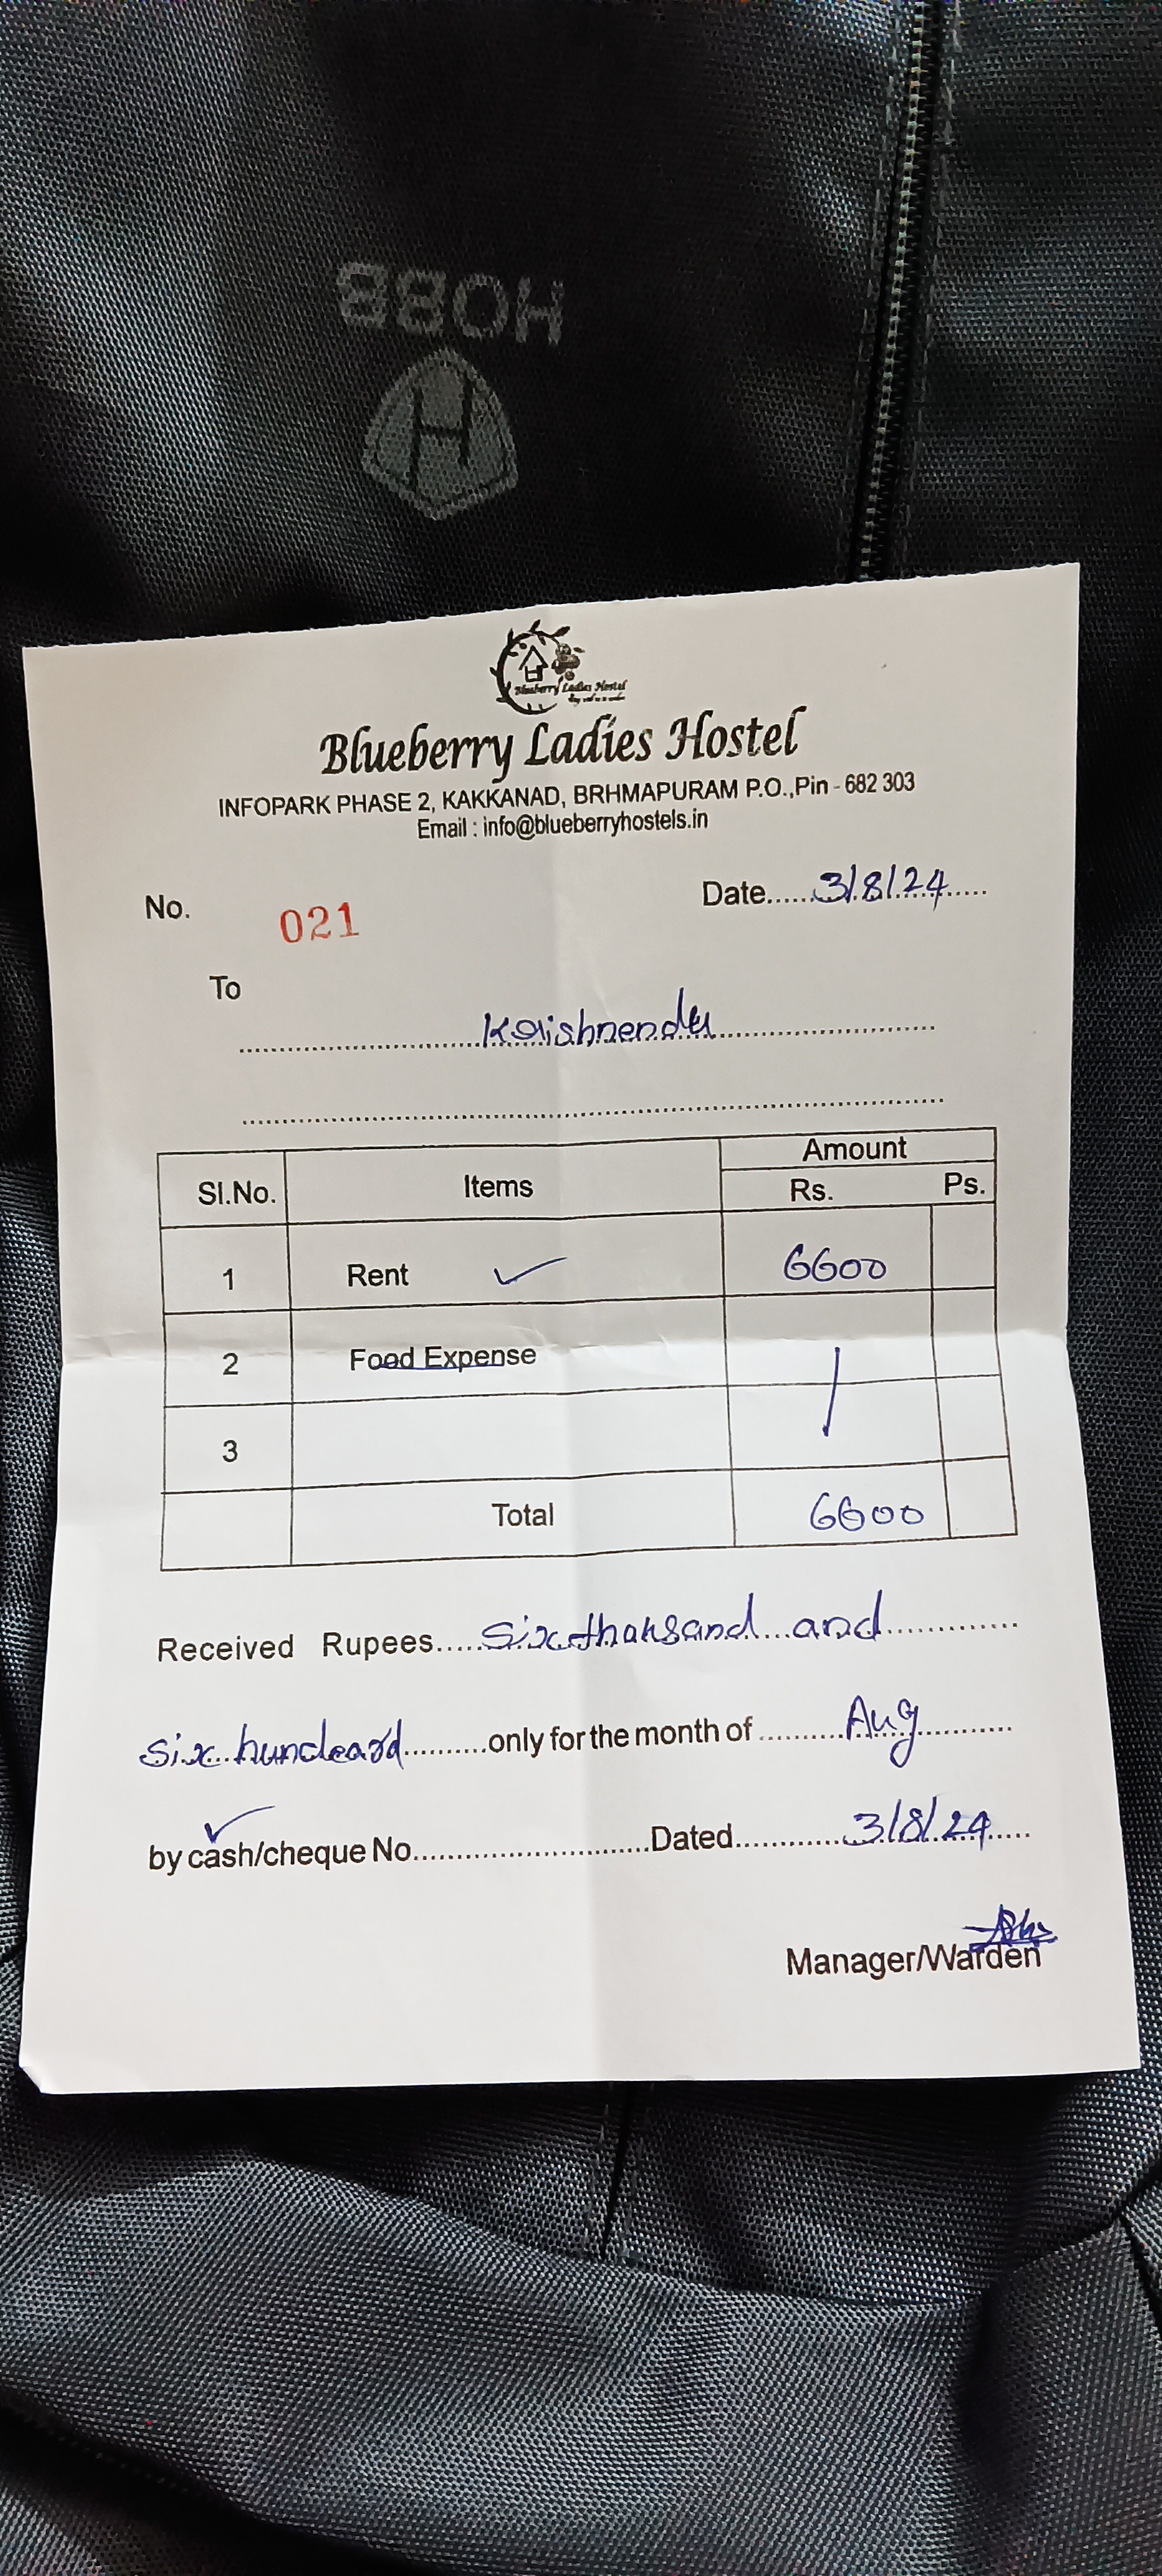 HOBB
H
Blueberry Ladies Hostel
Blueberry Ladies Hostel
INFOPARK PHASE 2, KAKKANAD, BRHMAPURAM P.O.,Pin - 682 303
Email : info@blueberryhostels.in
No. 021 Date......3/8/24......
To
Krishnendu
Sl.No. Items Amount
Rs. Ps.
1 Rent ✓ 6600
2 Food Expense
3
Total 6600
Received Rupees.....Six thousand and.............
Six hundeard..........only for the month of .........Aug............
✓
by cash/cheque No............................Dated............3/8/24.....
Manager/Warden